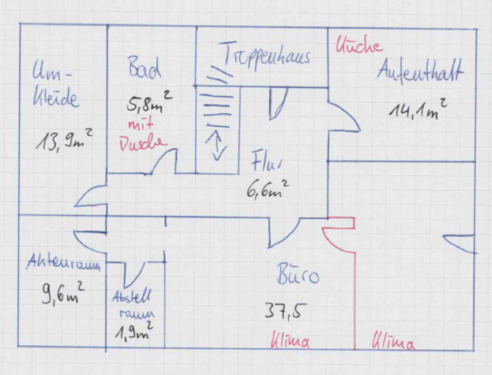 Um-
kleide
13,9m²
Bad
5,8m²
mit
Dusche
Treppenhaus
Küche
Aufenthalt
14,1m²
Flur
6,6m²
Aktenraum
9,6m²
Abstell
raum
1,9m²
Büro
37,5
Klima
Klima